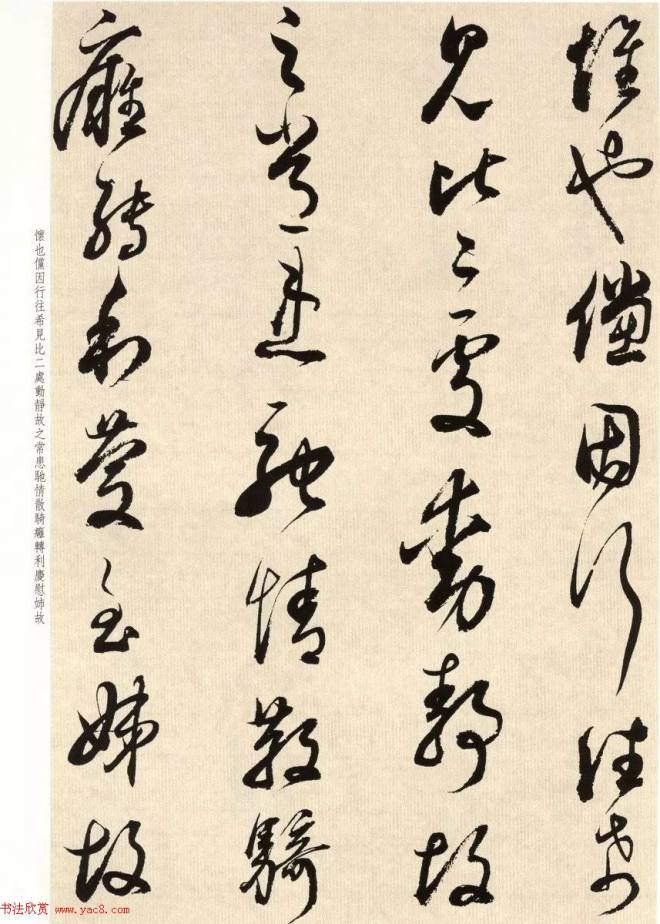 懷也儻因行往希
見比二處動靜故
之常患馳情散騎
癰轉利慶慰姊故
懷也儻因行往希見比二處動靜故之常患馳情散騎癰轉利慶慰姊故
书法欣赏 www.yac8.com